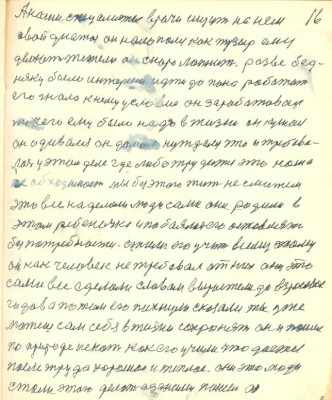 16
А наши специалисты врачи ищут на нем
свой диагноз он налополи как пузыр ему
он скоро лопнит. разве бед-
няку было интересно идти до пана работат
его знало к нему условие он заработовал
то чего ему было надо в жизни он кушал
он одивался он нуждался это и требова-
лось у этом деле где либо трудится это наша
необходимост мы бу этого жит не сметем
это все на делали люди сами они родили в
этом ребеночка и побоялись его оставлять
бу потребности. стали его учит всему такому
он как человек не требовал от них они это
сами все сделали славам вырастем до взрослое
года а потом его пихнули сказали ты уже
можеш сам себя в жизни сохронят он и пошел
по природе искат как его учили что дается
после труда хорошое и теплое. они это люди
стали этого делат